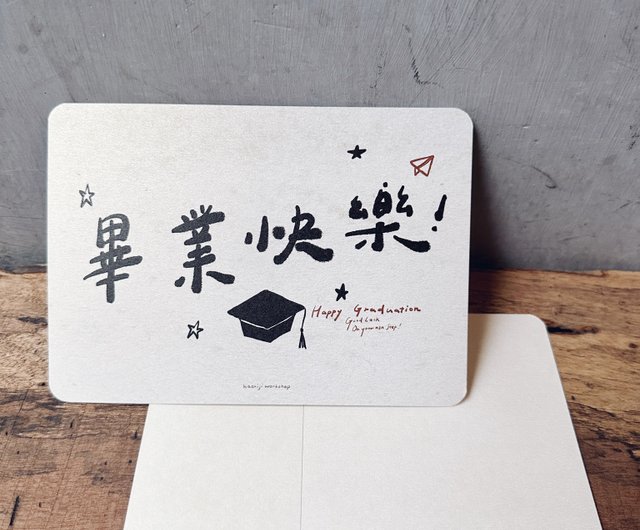 畢業快樂!
Happy Graduation
Good luck
On your new step!